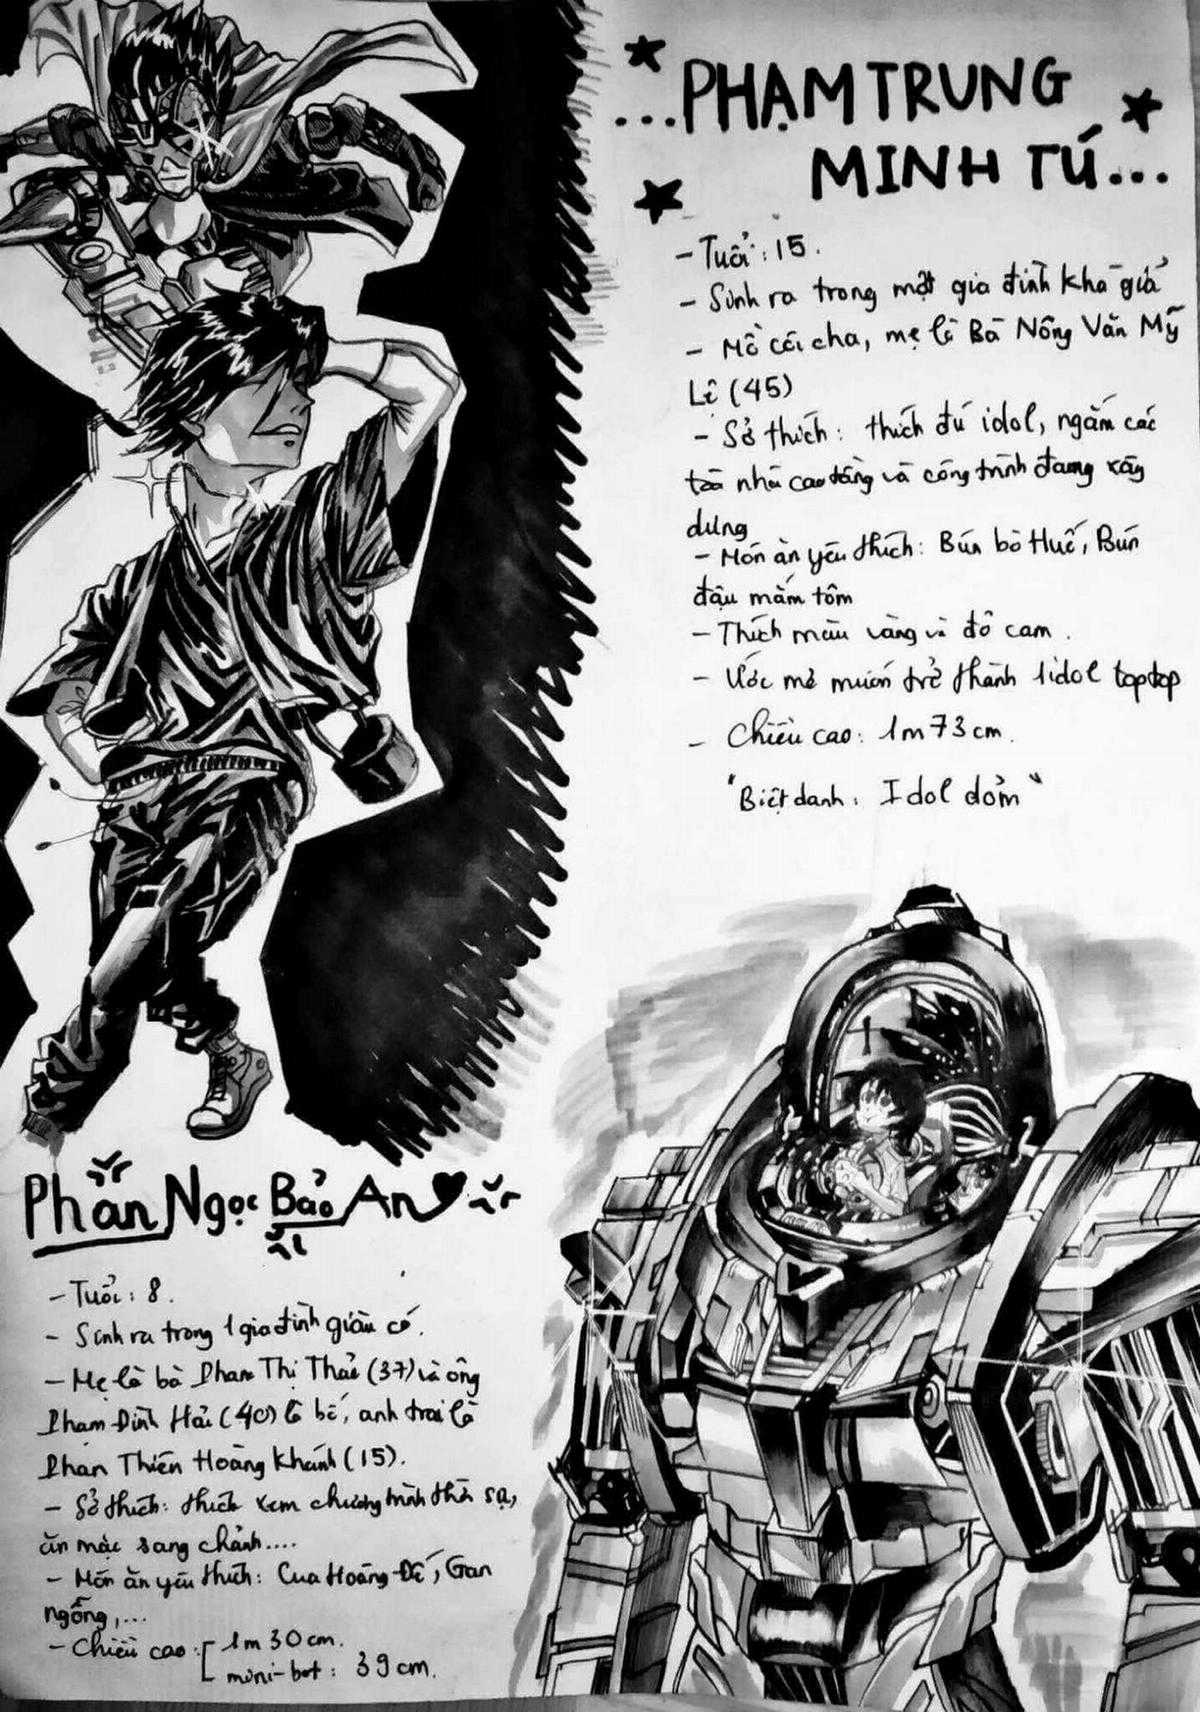 ...PHẠM TRUNG
MINH TÚ...
- Tuổi: 15.
- Sinh ra trong một gia đình khá giả
- Mồ côi cha, mẹ là Bà Nông Văn Mỹ
Lệ (45)
- Sở thích: thích đú idol, ngắm các
toà nhà cao tầng và công trình đang xây
dựng
- Món ăn yêu thích: Bún bò Huế, Bún
đậu mắm tôm
- Thích màu vàng và đỏ cam.
- Ước mơ muốn trở thành 1 idol toptop
- Chiều cao: 1m73cm.
"Biệt danh: Idol dỏm"
Phan Ngọc Bảo An
- Tuổi: 8.
- Sinh ra trong 1 gia đình giàu có.
- Mẹ là bà Phan Thị Thảo (37) và ông
Phạm Đình Hải (40) là bố, anh trai là
Phan Thiên Hoàng Khánh (15).
- Sở thích: thích xem chương trình thời sự,
ăn mặc sang chảnh....
- Món ăn yêu thích: Cua Hoàng Đế, Gan
ngỗng,...
- Chiều cao: 1m30cm.
mini-bot: 39cm.